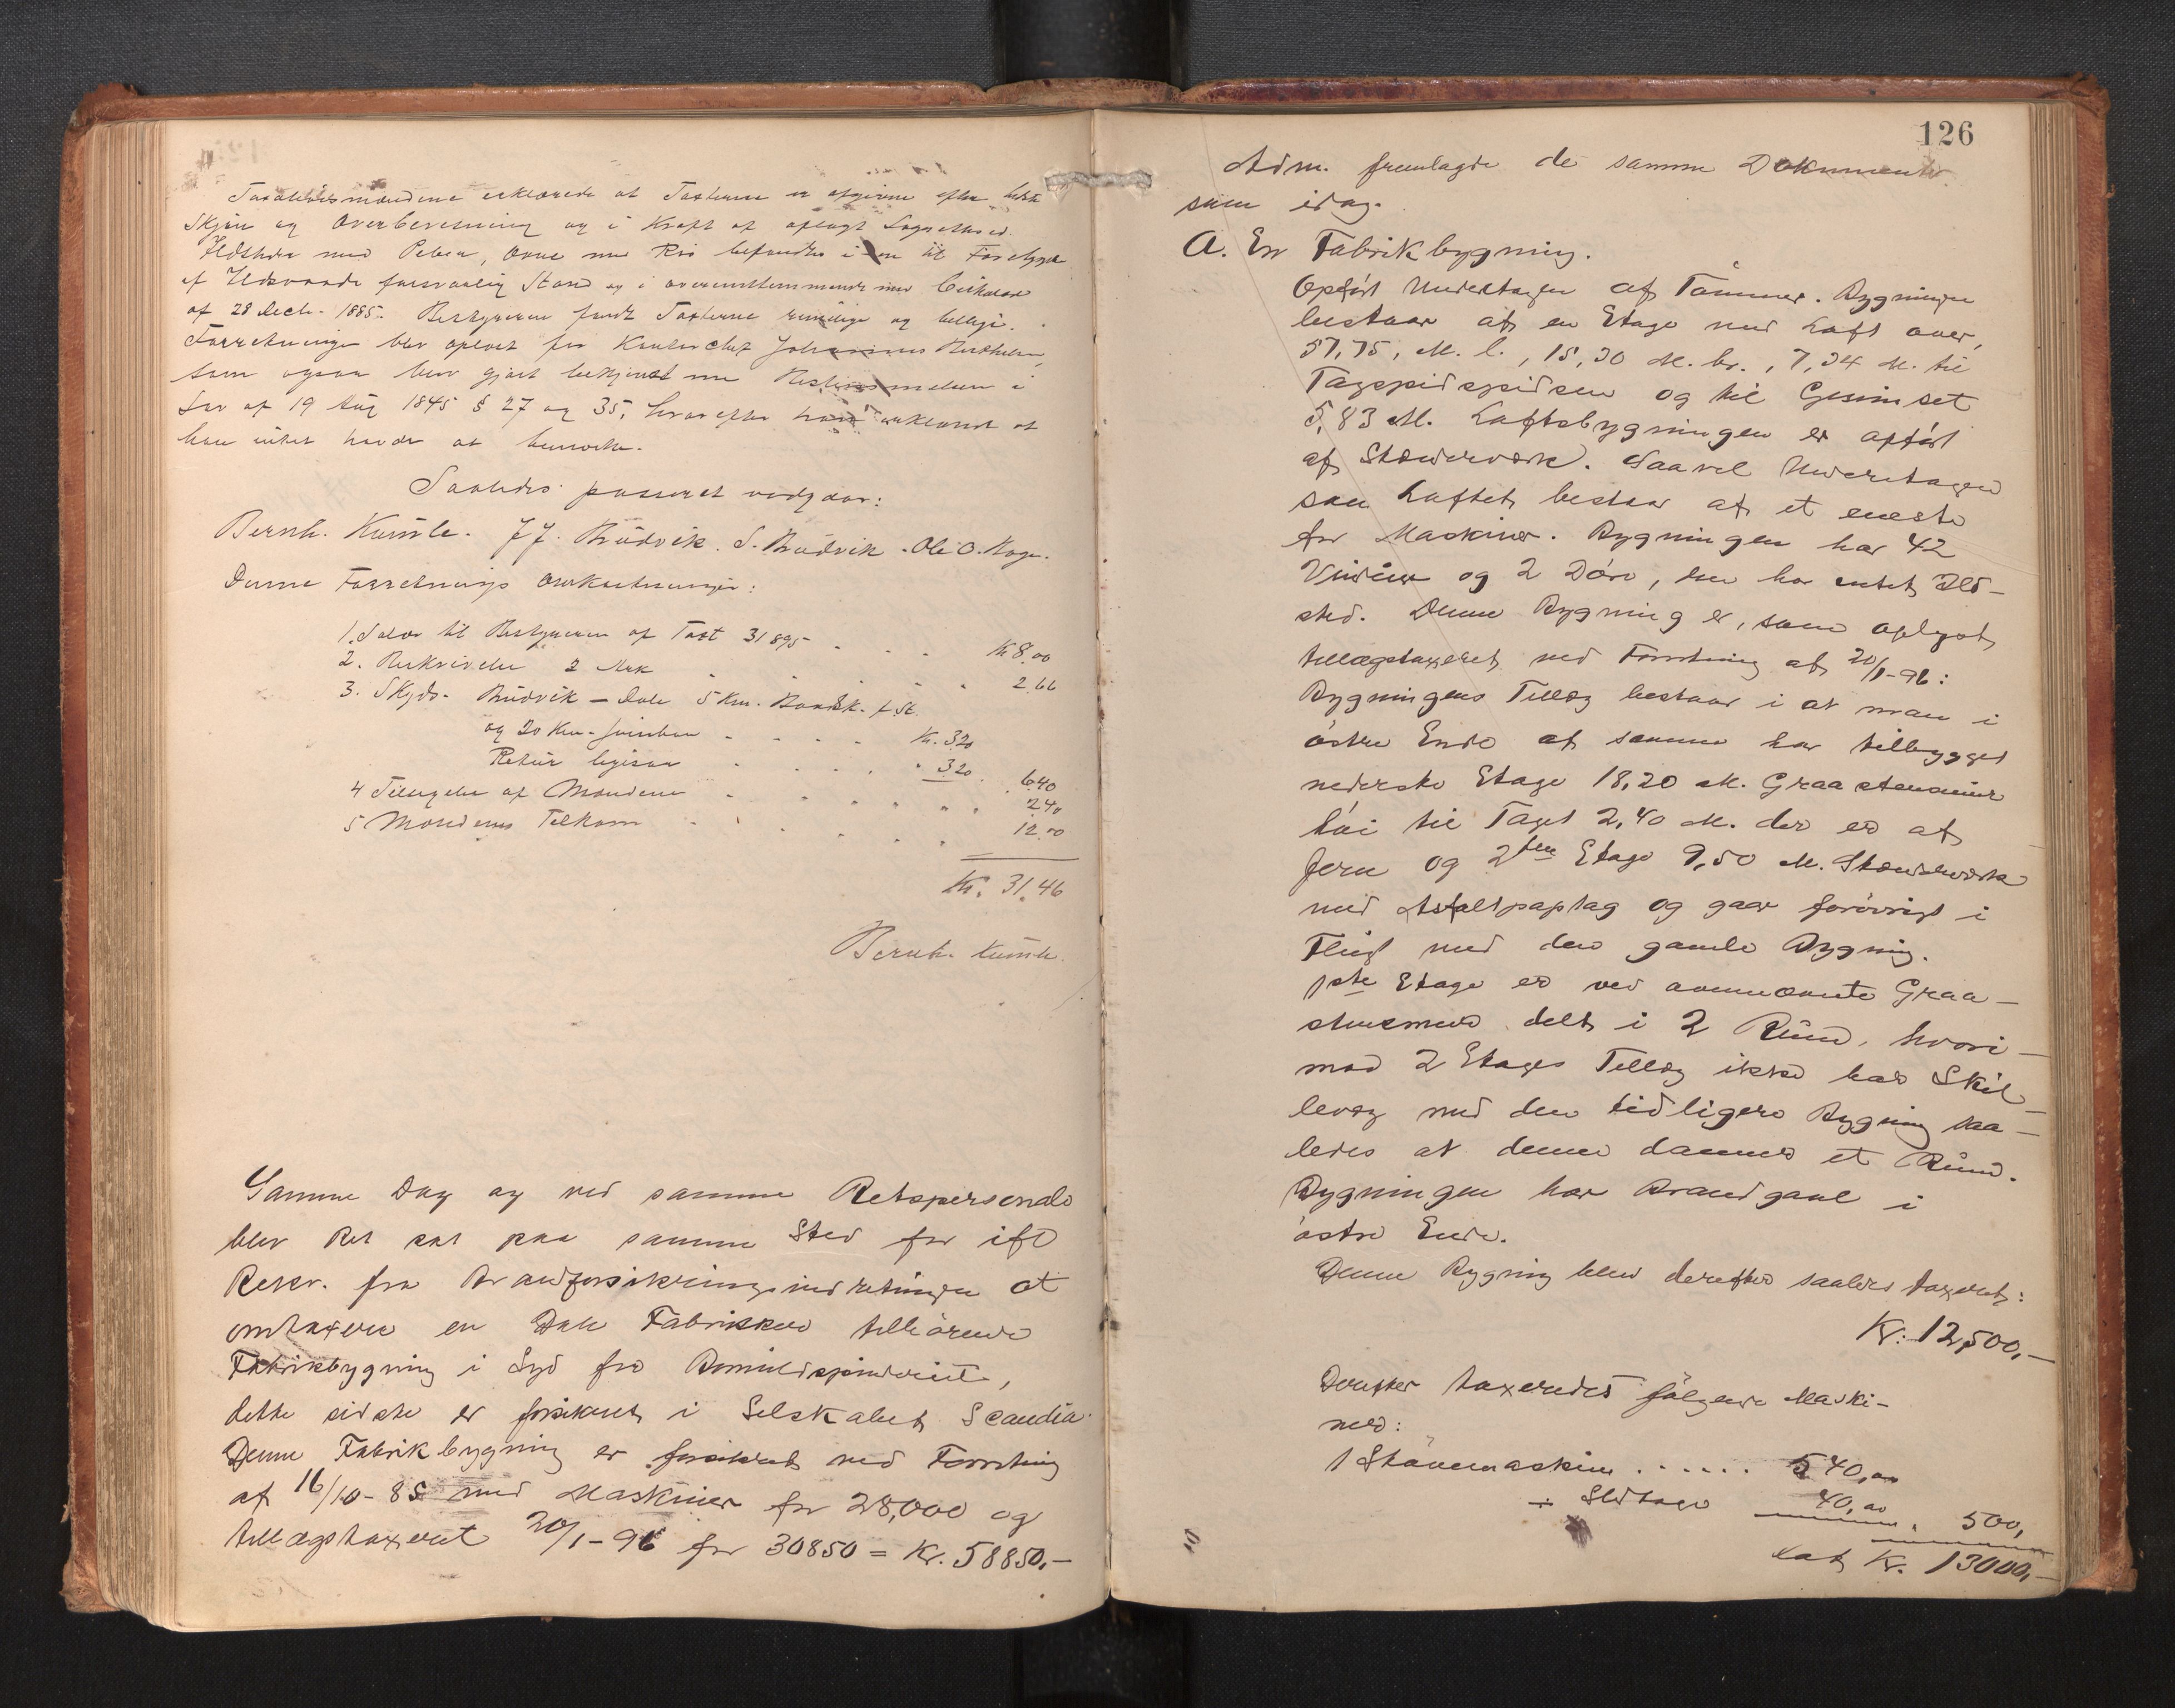 Taxationsmændene erklærede at Taxterne er afgivne efter bedste
Skjøn og Overbevisning og i Kraft af aflagt Lagrettesed.
Ildstedr med Peber, Ovne med Rør befandtes i en til Forebyggelse
af Ildsvaade forsvarlig Stand og i overensstemmende med Cirkulær
af 28 Decbr. 1885. Bestyreren fandt Taxterne rimelige og billige.
Forretningen blev oplæst for Kontorchef Johannes Berthelsen
som ogsaa blev gjort bekjendt med Bestemmelsen i
Lov af 19 Aug 1845 § 27 og 35, hvorefter han erklærede at
han intet havde at bemærke.
Saaledes passeret vedgaar:
Bernh. Kumle. J J. Brüdvik. S. Brüdvik. Ole O. Hage.
Denne Forretnings Omkostninger:
1. Salær til Bestyreren af Taxt 31895 - - - Kr 8.00
2. Beskrivelse 2 Ark - - - 2.66
3. Skyds. Brüdvik – Dale 5 Km. Baadsk. f. St.
og 20 Km - - - - Kr. 3.20
Retür ligesaa - - - 3.20 . 6.40
4 Tilsigelse af Mændene - - - 2.40
5 Mændenes Tilkom - - - 12.00
Kr. 31.46
Bernh. Kumle.
Samme Dag og ved samme Retspersonale
blev Ret sat paa samme Sted for ifl
Rekv. fra Brandforsikringsindretningen at
omtaxere en Dale Fabrikker tilhörende
Fabrikbygning i Syd fra Bomuldspinderiet,
dette sidste er forsikret i Selskabet Scandia.
Denne Fabrikbygning er forsikret ved Forretning
af 16/10-85 med Maskiner for 28,000 og
tillægstaxeret 20/1-96 for 30850 = Kr. 58850,–
126
Adm. fremlagde de samme Dokumenter
som idag.
A. En Fabrikbygning.
Opført Underetagen af Tömmer. Bygningen
bestaar af en Etage med Loft over,
57,75, M. l., 15,30 M. br., 7,34 M. til
Tagspidspidsen og til Gesimset
5,83 M. Loftsbygningen er opført
af Stænderværk. Saavel Underetagen
som Loftet bestaar af et eneste
for Maskiner. Bygningen har 42
Vinduer og 2 Döre, den har intet Ild-
sted. Denne Bygning er, som oplyst,
tillægstaxeret ved Forretning af 20/1-96:
Bygningens Tillæg bestaar i at man i
östre Ende af samme har tilbygget
nederste Etage 18,20 M. Graastensmur
höi til Taget 2,40 M. der er af
Jern og 2den Etage 9,50 M. Stænderværk
med Asfaltpaptag og gaar forövrigt i
Flugt med den gamle Bygning.
1ste Etage er ved ovennævnte Graa-
stensmur delt i 2 Rüm, hvori-
mod 2 Etages Tillæg ikke har Skil-
levæg med den tidligere Bygning saa-
ledes at denne danner et Rüm.
Bygningen har Brandgavl i
östre Ende.
Denne Bygning blev derefter saaledes taxeret:
Kr. 12,500,–
Derefter taxeredes fölgende Maski-
ner:
1 Skæremaskine . . . . . . 540,00
÷ Slitage 40,00 . 500,
lat Kr. 13000,–